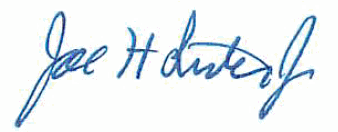 Joe H Lister Jr